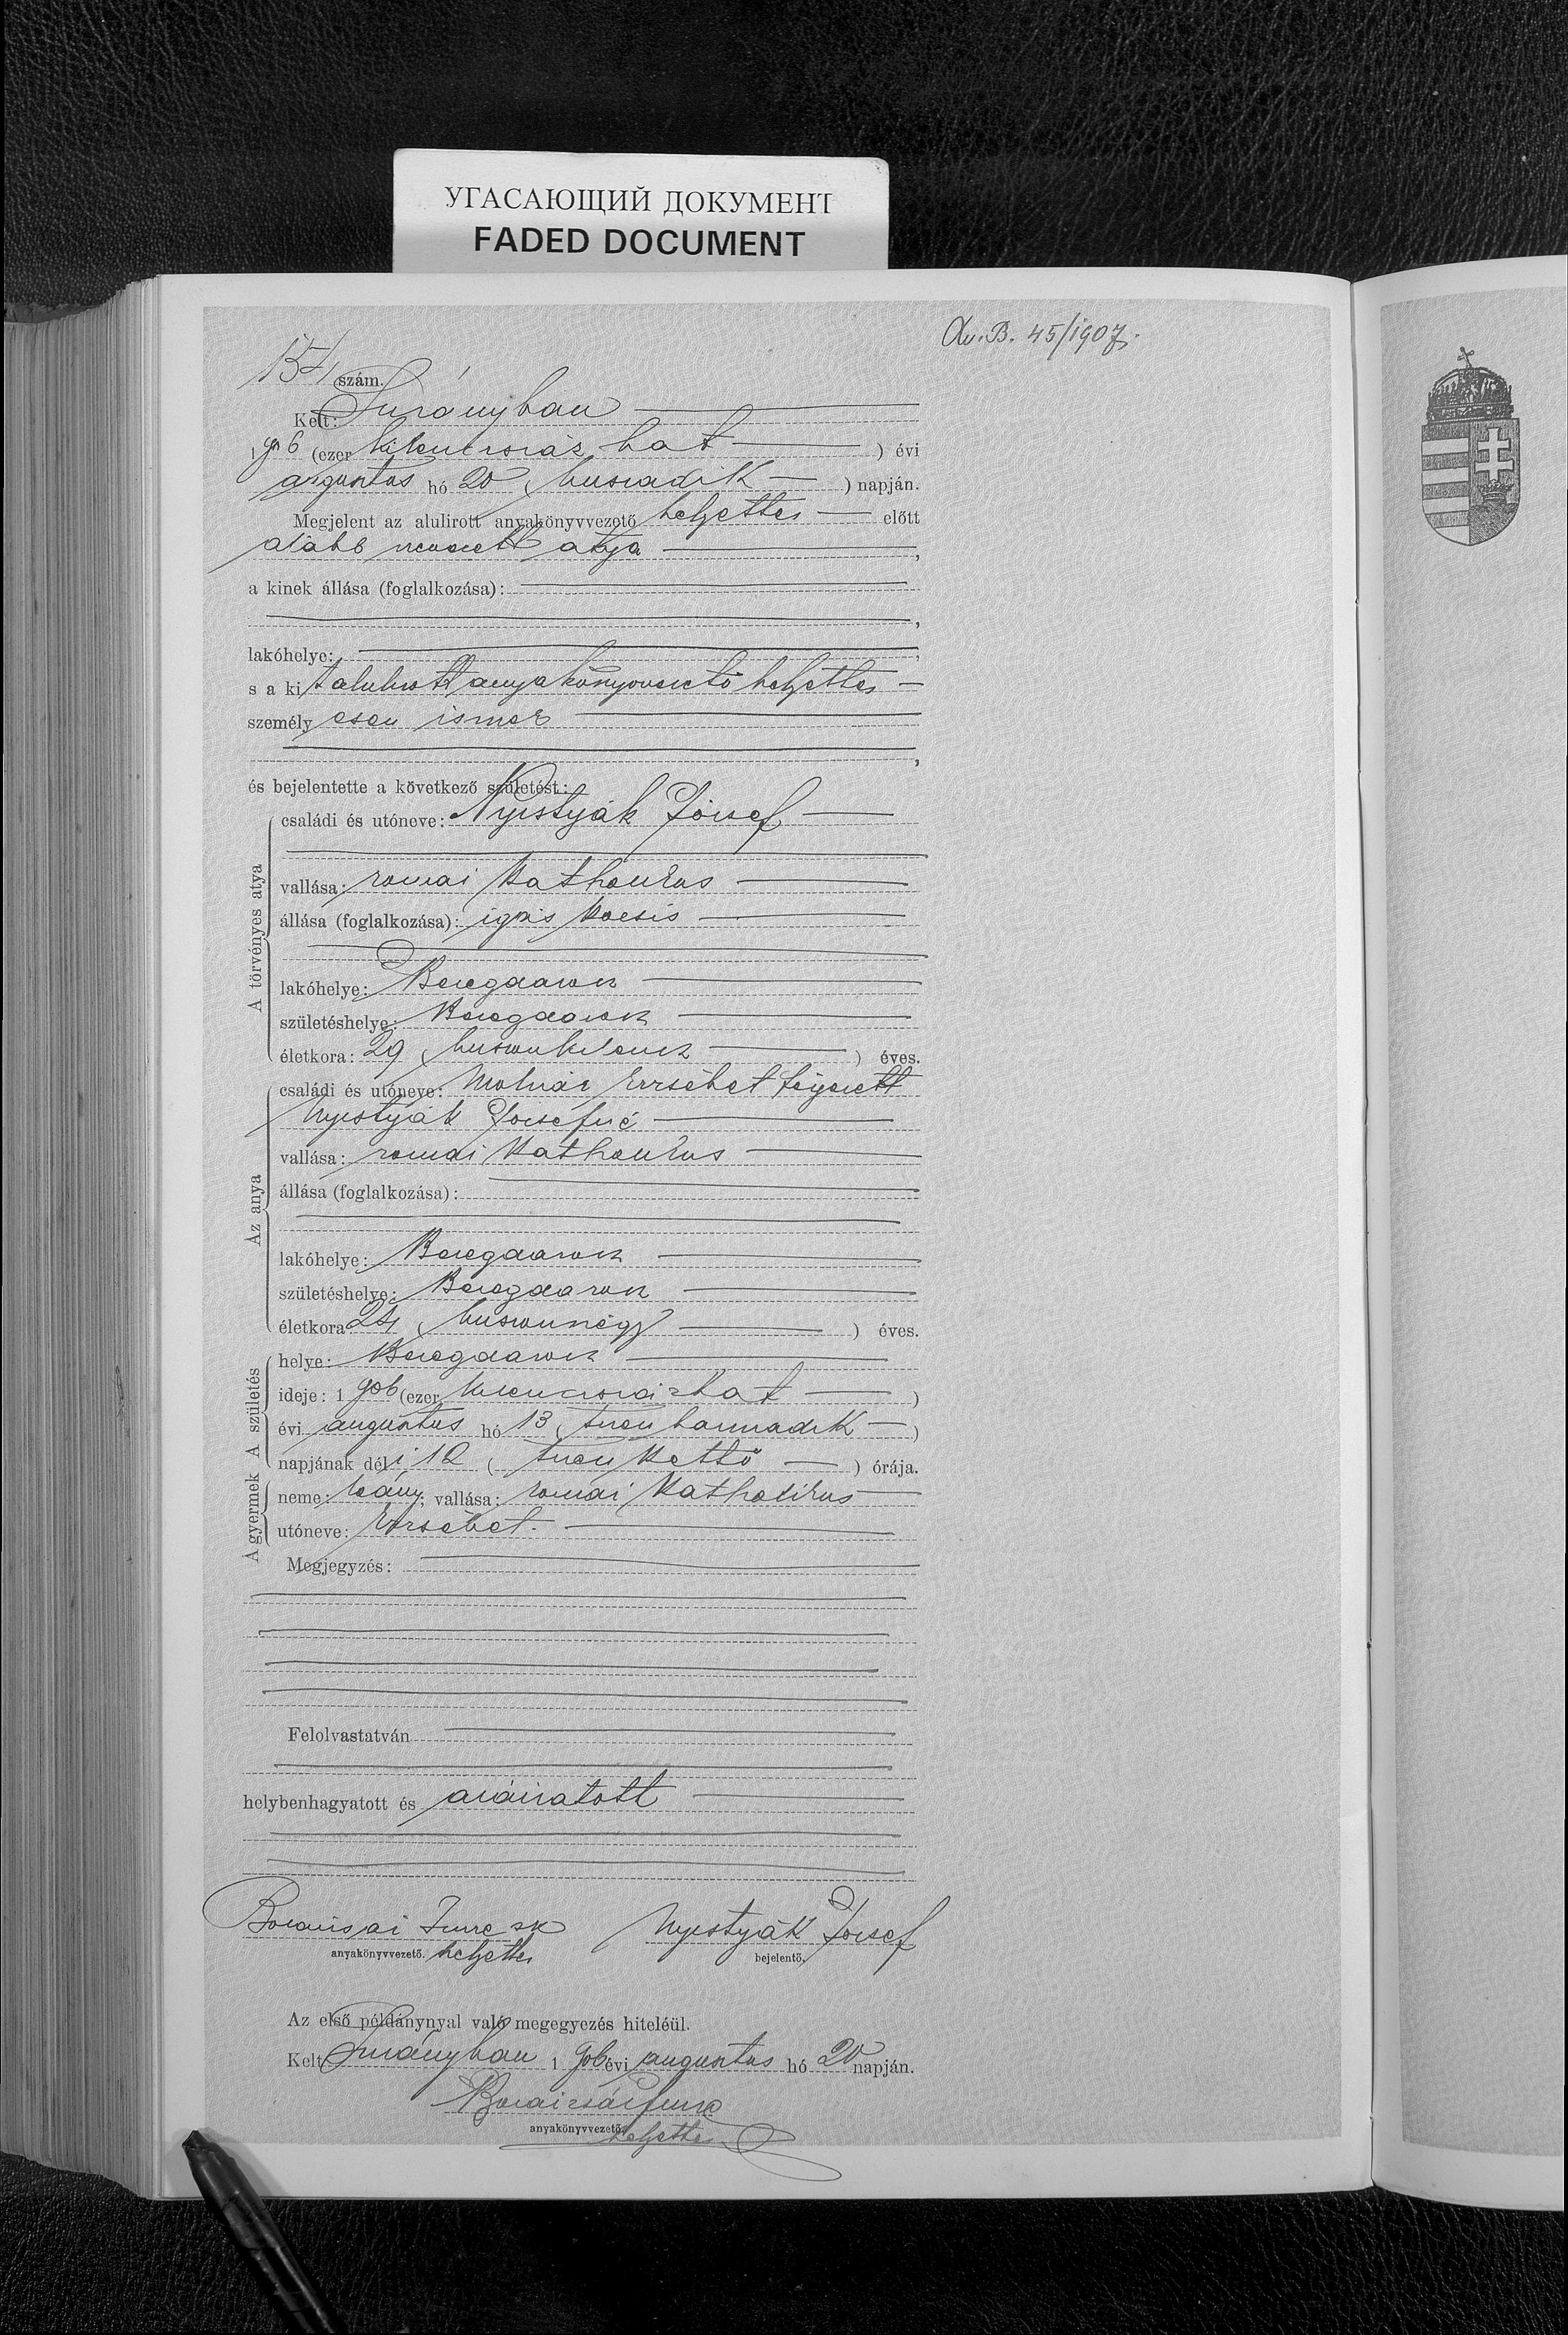 УГАСАЮЩИЙ ДОКУМЕНТ
FADED DOCUMENT
45/1907.
szám.
Kelt: Surányban
1906 (ezer kilencszáz hat) évi
augusztus hó 20 (huszadik) napján.
Megjelent az alulirott anyakönyvvezető helyettes előtt
alább nevezett atyja,
a kinek állása (foglalkozása):
lakóhelye:
s a kit alulirott anyakönyvvezető helyettes
személyesen ismer
és bejelentette a következő születést:
A törvényes atya
családi és utóneve: Nyistyák József
vallása: romai katholikus
állása (foglalkozása): igás kocsis
lakóhelye: Beregdarócz
születéshelye: Beregdarócz
életkora: 29 (huszonkilencz) éves.
Az anya
családi és utóneve: Molnár Erzsébet férjezett
Nyistyák Józsefné
vallása: romai katholikus
állása (foglalkozása):
lakóhelye: Beregdarócz
születéshelye: Beregdarócz
életkora: 24 (huszonnégy) éves.
A születés
helye: Beregdarócz
ideje: 1906 (ezer kilenczszáz hat)
évi augusztus hó 13 (tizenharmadik)
napjának déli 12 (tizenkettő) órája.
A gyermek
neme: leány; vallása: romai katholikus
utóneve: Erzsébet.
Megjegyzés:
Felolvastatván
helybenhagyatott és aláiratott
Imre sk Nyistyák József
anyakönyvvezető. helyettes bejelentő.
Az első példánynyal való megegyezés hiteléül.
Kelt Surányban 1906 évi augusztus hó 20 napján.
Imre
anyakönyvvezető. helyettes